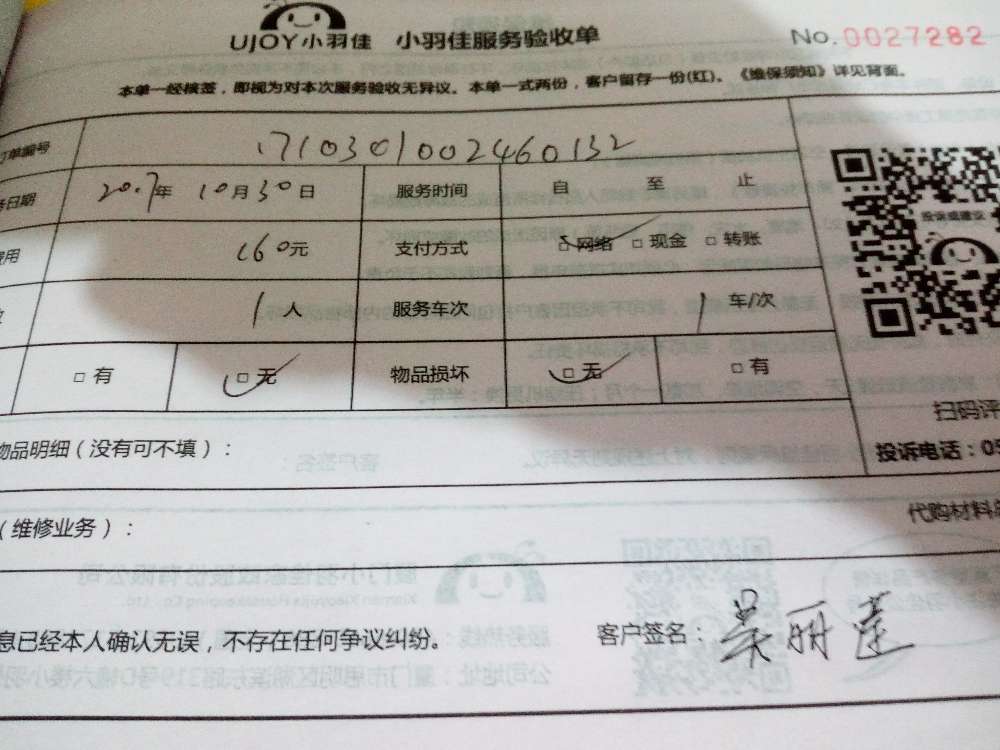 UJOY小羽佳 小羽佳服务验收单 No.0027282
本单一经核签，即视为对本次服务验收无异议。本单一式两份，客户留存一份(红)。《维保须知》详见背面。
订单编号 1710301002460132
务日期 2017年 10月30日 服务时间 自 至 止
费用 160元 支付方式 □网络 □现金 □转账
1人 服务车次 1车/次
□有 □无 物品损坏 □无 □有
投诉或建议
扫码评
物品明细（没有可不填）： 投诉电话：05
（维修业务）： 代购材料单
息已经本人确认无误，不存在任何争议纠纷。 客户签名：吴丽莲